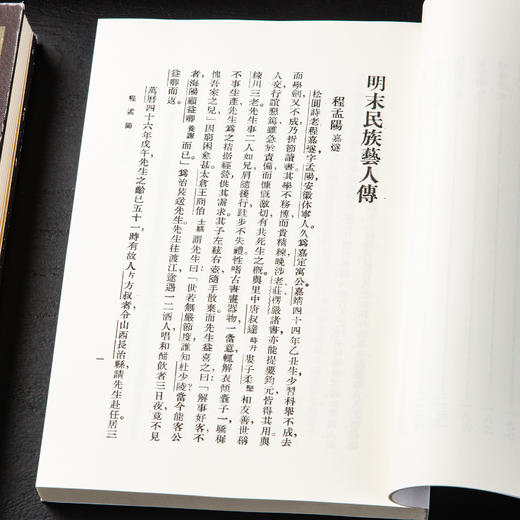 明末民族藝人傳
程孟陽 嘉燧
松圓詩老程嘉燧字孟陽安徽休寧人久爲嘉定寓公嘉靖四十四年乙丑生少習科舉不成去
而學劍又不成乃折節讀書其學不務博而貴精練晚涉老莊楞嚴諸書亦能提要鈎元皆得其用與
人交行誼懇篤雖急於責備而慷慨激切有共死生之概與里中唐叔達時升婁子柔堅相友善世稱
練川三老先生事二人如兄肩隨後行跬步不失禮性嗜古書畫器物一當意輒解衣傾囊子一驕穉
不事生產先生爲之拮据經營供其需求其子左絃右壺隨手散棄而先生益喜之曰「解事好客不
愧吾家之兒」因窮困愈甚太倉王問伯士騏謂先生曰「世若無嚴節度誰知杜少陵當今能客公
者海陽顧益卿養謙而已」爲治裝送先生先生往渡江途遇一二酒人唱和酣飲者三日夜竟不見
益卿而返
萬曆四十六年戊午先生之齡已五十一時有故人方叔者令山西長治縣請先生赴任居三
程孟陽
一